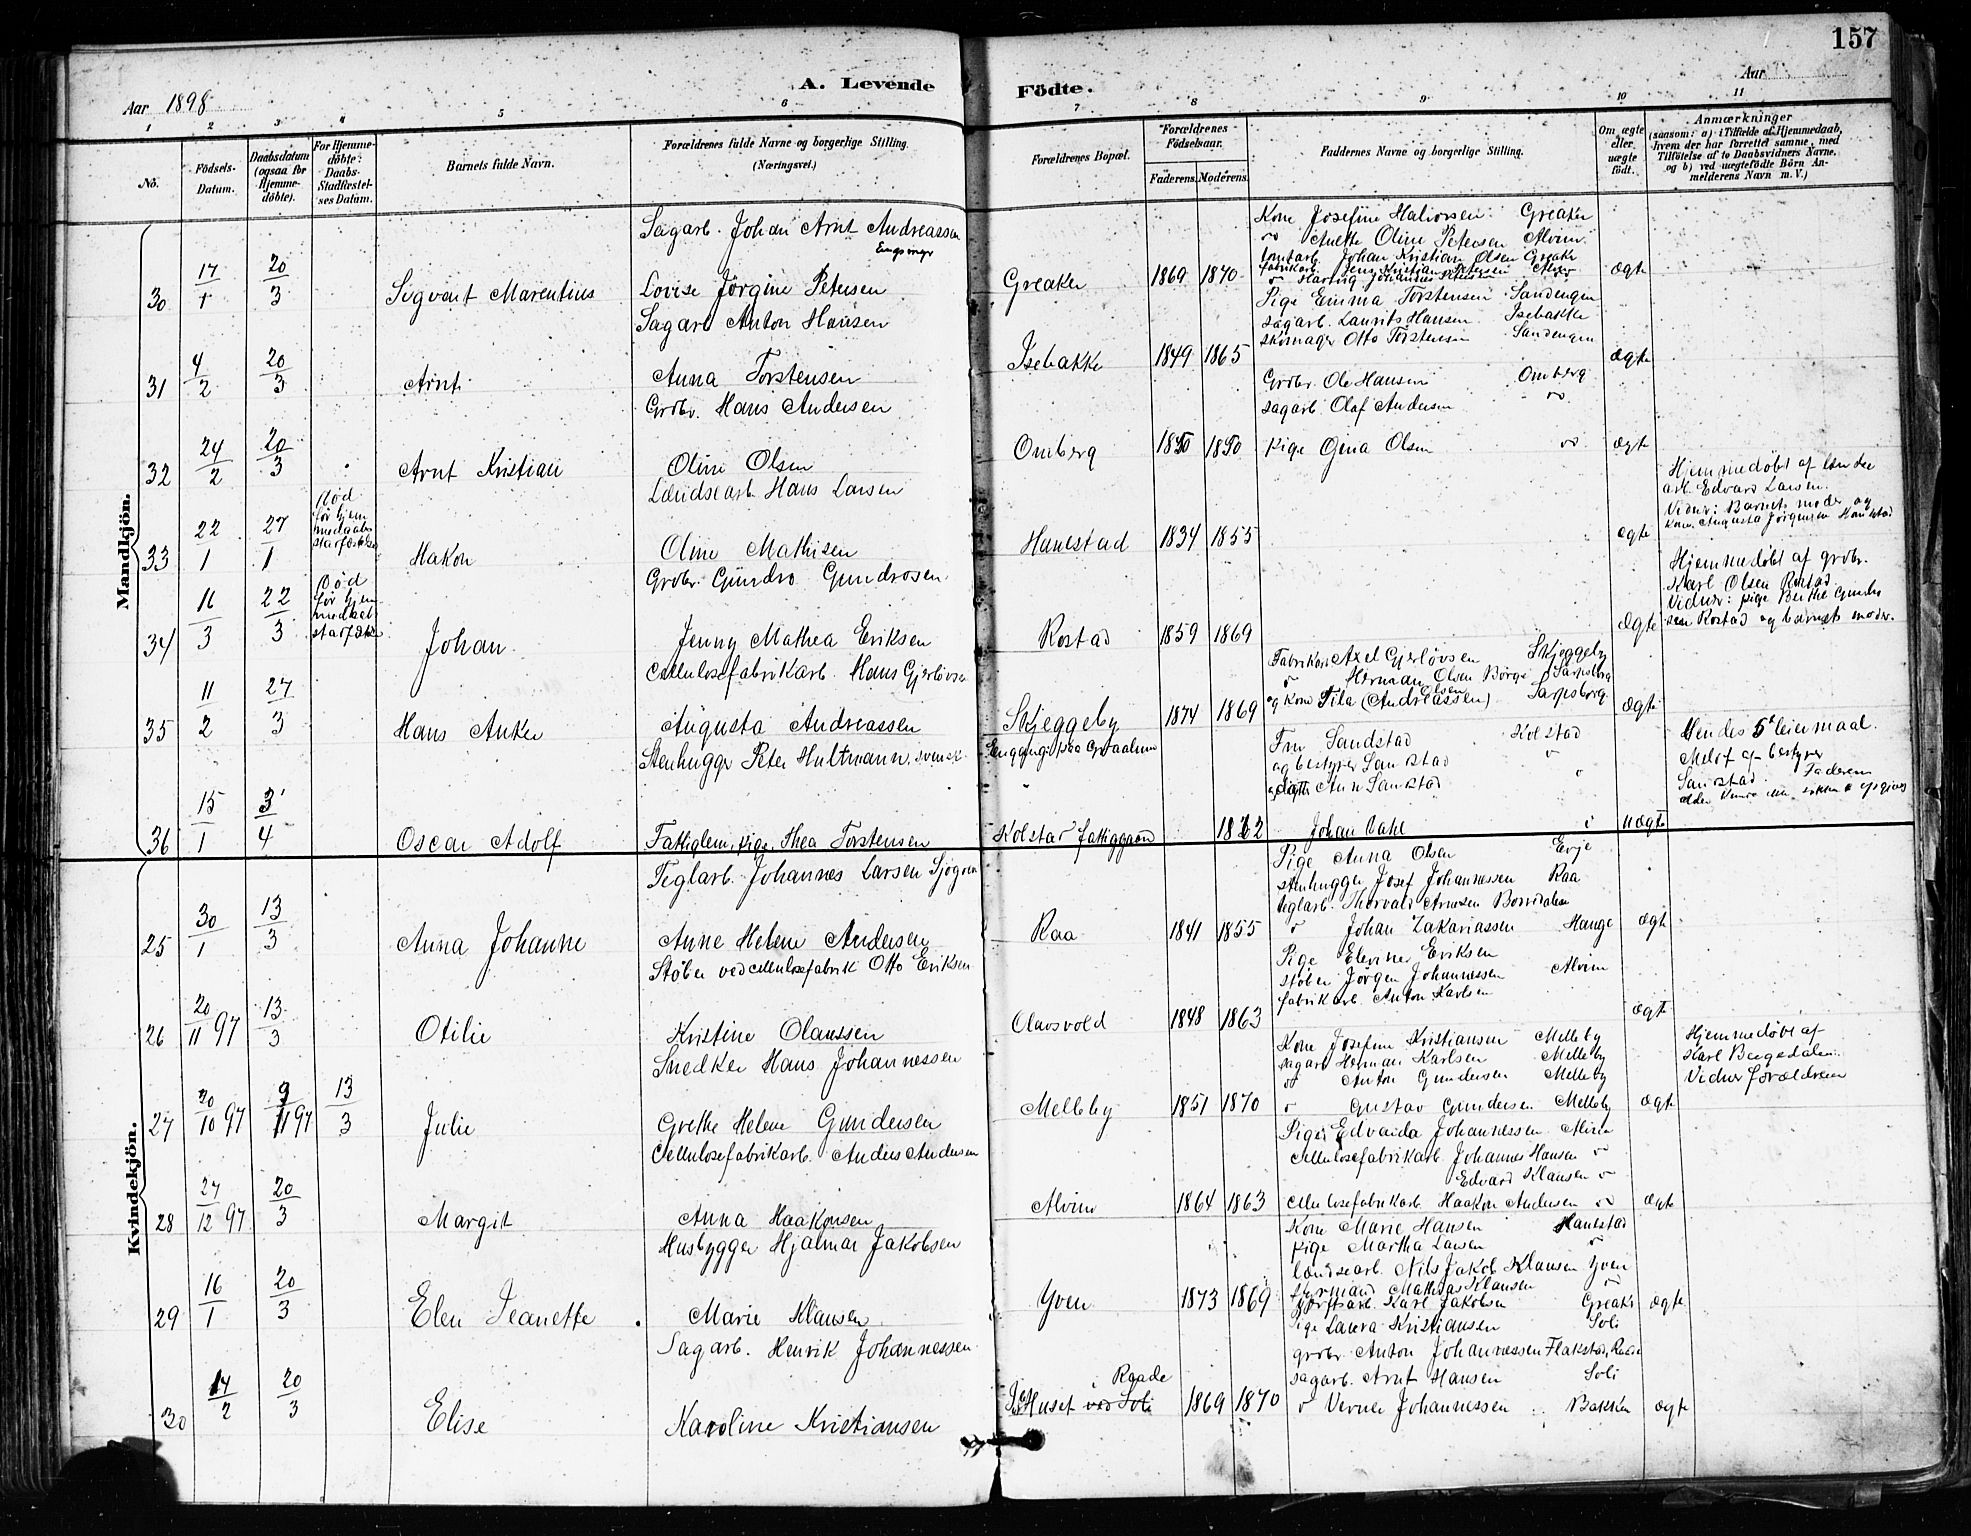 157
A. Levende Födte.
Aar 1898
Aar
1 2 3 4 5 6 7 8 9 10 11
No.
Födsels-Datum.
Daabsdatum (ogsaa for Hjemme-döbte).
For Hjemme-döbte: Daabs-Stadfæstel-ses Datum.
Barnets fulde Navn.
Forældrenes fulde Navne og borgerlige Stilling. (Næringsvei.)
Forældrenes Bopæl.
Forældrenes Födselsaar.
Faderens. Moderens.
Faddernes Navne og borgerlige Stilling.
Om ægte eller uægte födt.
Anmærkninger
(saasom: a) i Tilfælde af Hjemmedaab, hvem der har forrettet samme, med Tilföielse af to Daabsvidners Navne, og b) ved uægtefödte Börn An-melderens Navn m. V.)
Mandkjön.
Sagarb. Johan Arnt Andreassen
30 17/1 20/3 Sigvart Marentius Lovise Jørgine Petersen Greaker 1869 1870 ægte
Kone Josefine Halvorsen Greaker
Anette Oline Petersen Alvim
Johan Kristian Olsen Greaker
Sagarb. Anton Hansen
31 4/2 20/3 Arnt Anna Torstensen Isebakke 1849 1865 ægte
Pige Emma Torstensen Sandengen
sagarb. Laurits Hansen Isebakke
skomager Otto Torstensen Sandengen
Grdbr. Hans Andersen
32 24/2 20/3 Arnt Kristian Oline Olsen Omberg 1850 1850 ægte
Grdbr. Ole Hansen Omberg
sagarb. Olaf Andersen
Pige Gina Olsen
Lændsearb. Hans Larsen
33 22/1 27/1 Død før hjemmedaabs Hakon Oline Mathisen Hanestad 1834 1855 ægte
Hjemmedøbt af
arb. Edvard Larsen.
Vidner: Barnets moder og
kone Augusta Jørgensen Hanestad
Grdbr. Gundro Gundrosen
34 16/3 22/3 Død før hjem Johan Jenny Mathea Eriksen Rostad 1859 1869 Ægte
Hjemmedøbt af grdbr.
Karl Olsen Rostad
Vidner: pige Berthe Gundro
sen Rostad og barnets moder.
Cellulosefabrikarb. Hans Gjerløvsen
35 11/2 27/3 Hans Anker Augusta Andreassen Skjeggeby 1874 1869 Ægte
Fabrikarb. Axel Gjerløvsen Skjeggeby
Herman Olsen Borge Sarpsborg
og kone Tila (Andreassen) Olsen Sarpsborg
Stenhugger Peter Hultmann, svensk
36 15/1 3/4 Oscar Adolf Fattiglem, pige Thea Torstensen Kolstad fattiggaard 1862 uægte
Fru Sandstad Kolstad
og bestyrer Sanstad
Ann Sanstad
Johan Dahl
Hendes 5te leiermaal.
Meldt af bestyrer
Sanstad. Faderens
alder kunde ikke sikkert opgives
Kvindekjön.
Teglarb. Johannes Larsen Sjøgren
25 30/1 13/3 Anna Johanne Anne Helene Andersen Raa 1841 1855 ægte
Pige Anna Olsen Evje
stenhugger Josef Johannessen Raa
teglarb. Thorvald Arnesen Borredalen
Johan Zakariassen Hauge
Støber ved cellulosefabrik Otto Eriksen
26 20/11 97 13/3 Otilie Kristine Olaussen Olavsvold 1848 1863 ægte
Pige Elevine Eriksen
støber Jørgen Johannessen Alvim
fabrikarb. Anton Karlsen
Snedker Hans Johannessen
27 20/10 97 9/11 97 13/3 Julie Grethe Helene Gundersen Melleby 1851 1870 ægte
Kone Josefine Kristiansen Melleby
sagarb Herman Karlsen Melleby
Anton Gundersen Melleby
Gustav Gundersen Melleby
Hjemmedøbt af
Karl Bøgedalen.
Vidner forældrene
Cellulosefabrikarb. Anders Andersen
28 27/12 97 20/3 Margit Anna Haakonsen Alvim 1864 1863 ægte
Pige Edvarda Johannessen Alvim
Cellulosefabrikarb. Johannes Hansen
Edvard Klausen
cellulosefabrikarb Haakon Andersen
Husbygger Hjalmar Jakobsen
29 16/1 20/3 Elen Jeanette Marie Klausen Yven 1873 1869 ægte
Kone Marie Hansen Hanestad
pige Martha Larsen
lændsearb. Nils Jakob Klausen Yven
styrmand Mathias Klausen
Karl Jakobsen Greaker
Sagarb. Henrik Johannessen
30 14/2 20/3 Elise Karoline Kristiansen Huset ved Soli Raade 1869 1870 ægte
Pige Laura Kristiansen Soli
grdbr. Anton Johannessen Flakstad, Raade
sagarb. Arnt Hansen Soli
Verner Johannessen Bakken